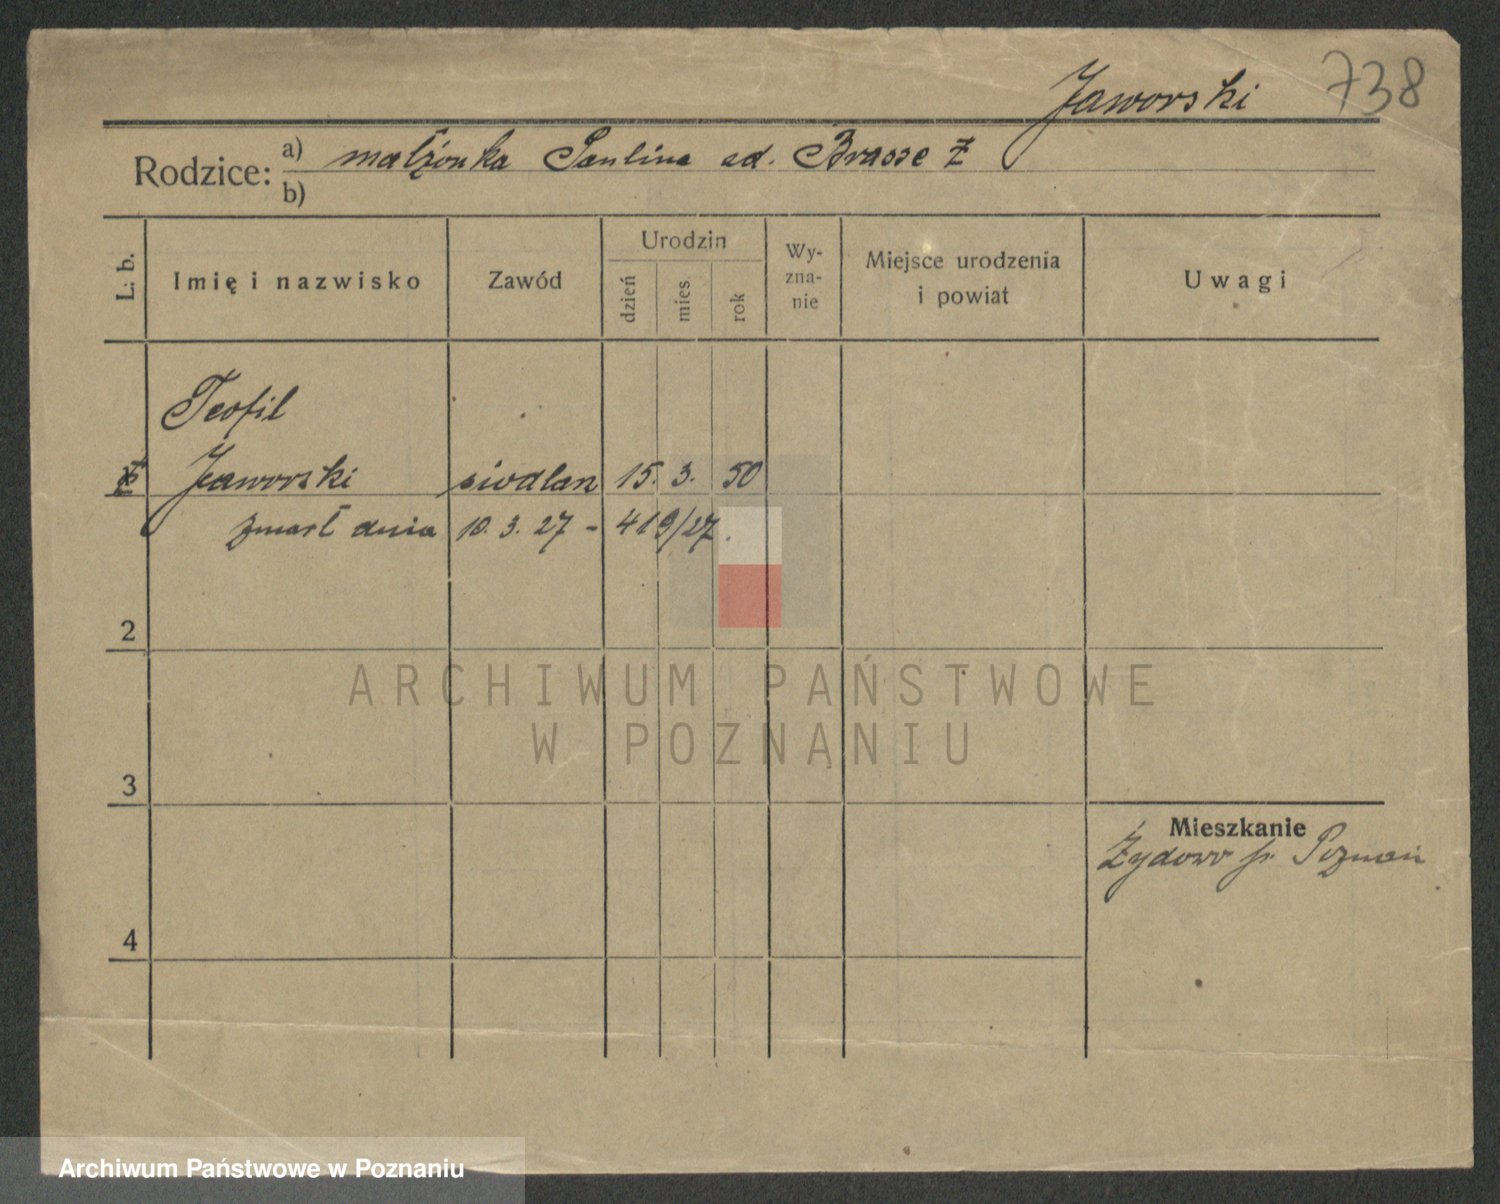 Jaworski 738
Rodzice: a) małżonka Paulina ad. Brasse Ƶ
b)
L. b. Imię i nazwisko Zawód Urodzin dzień mies rok Wy-zna-nie Miejsce urodzenia i powiat Uwagi
Teofil
Jaworski siodlarz 15. 3. 50
zmarł dnia 10. 3. 27 - 419/27.
2
ARCHIWUM PAŃSTWOWE
W POZNANIU
3
Mieszkanie
Żydowo p. Poznań
4
Archiwum Państwowe w Poznaniu